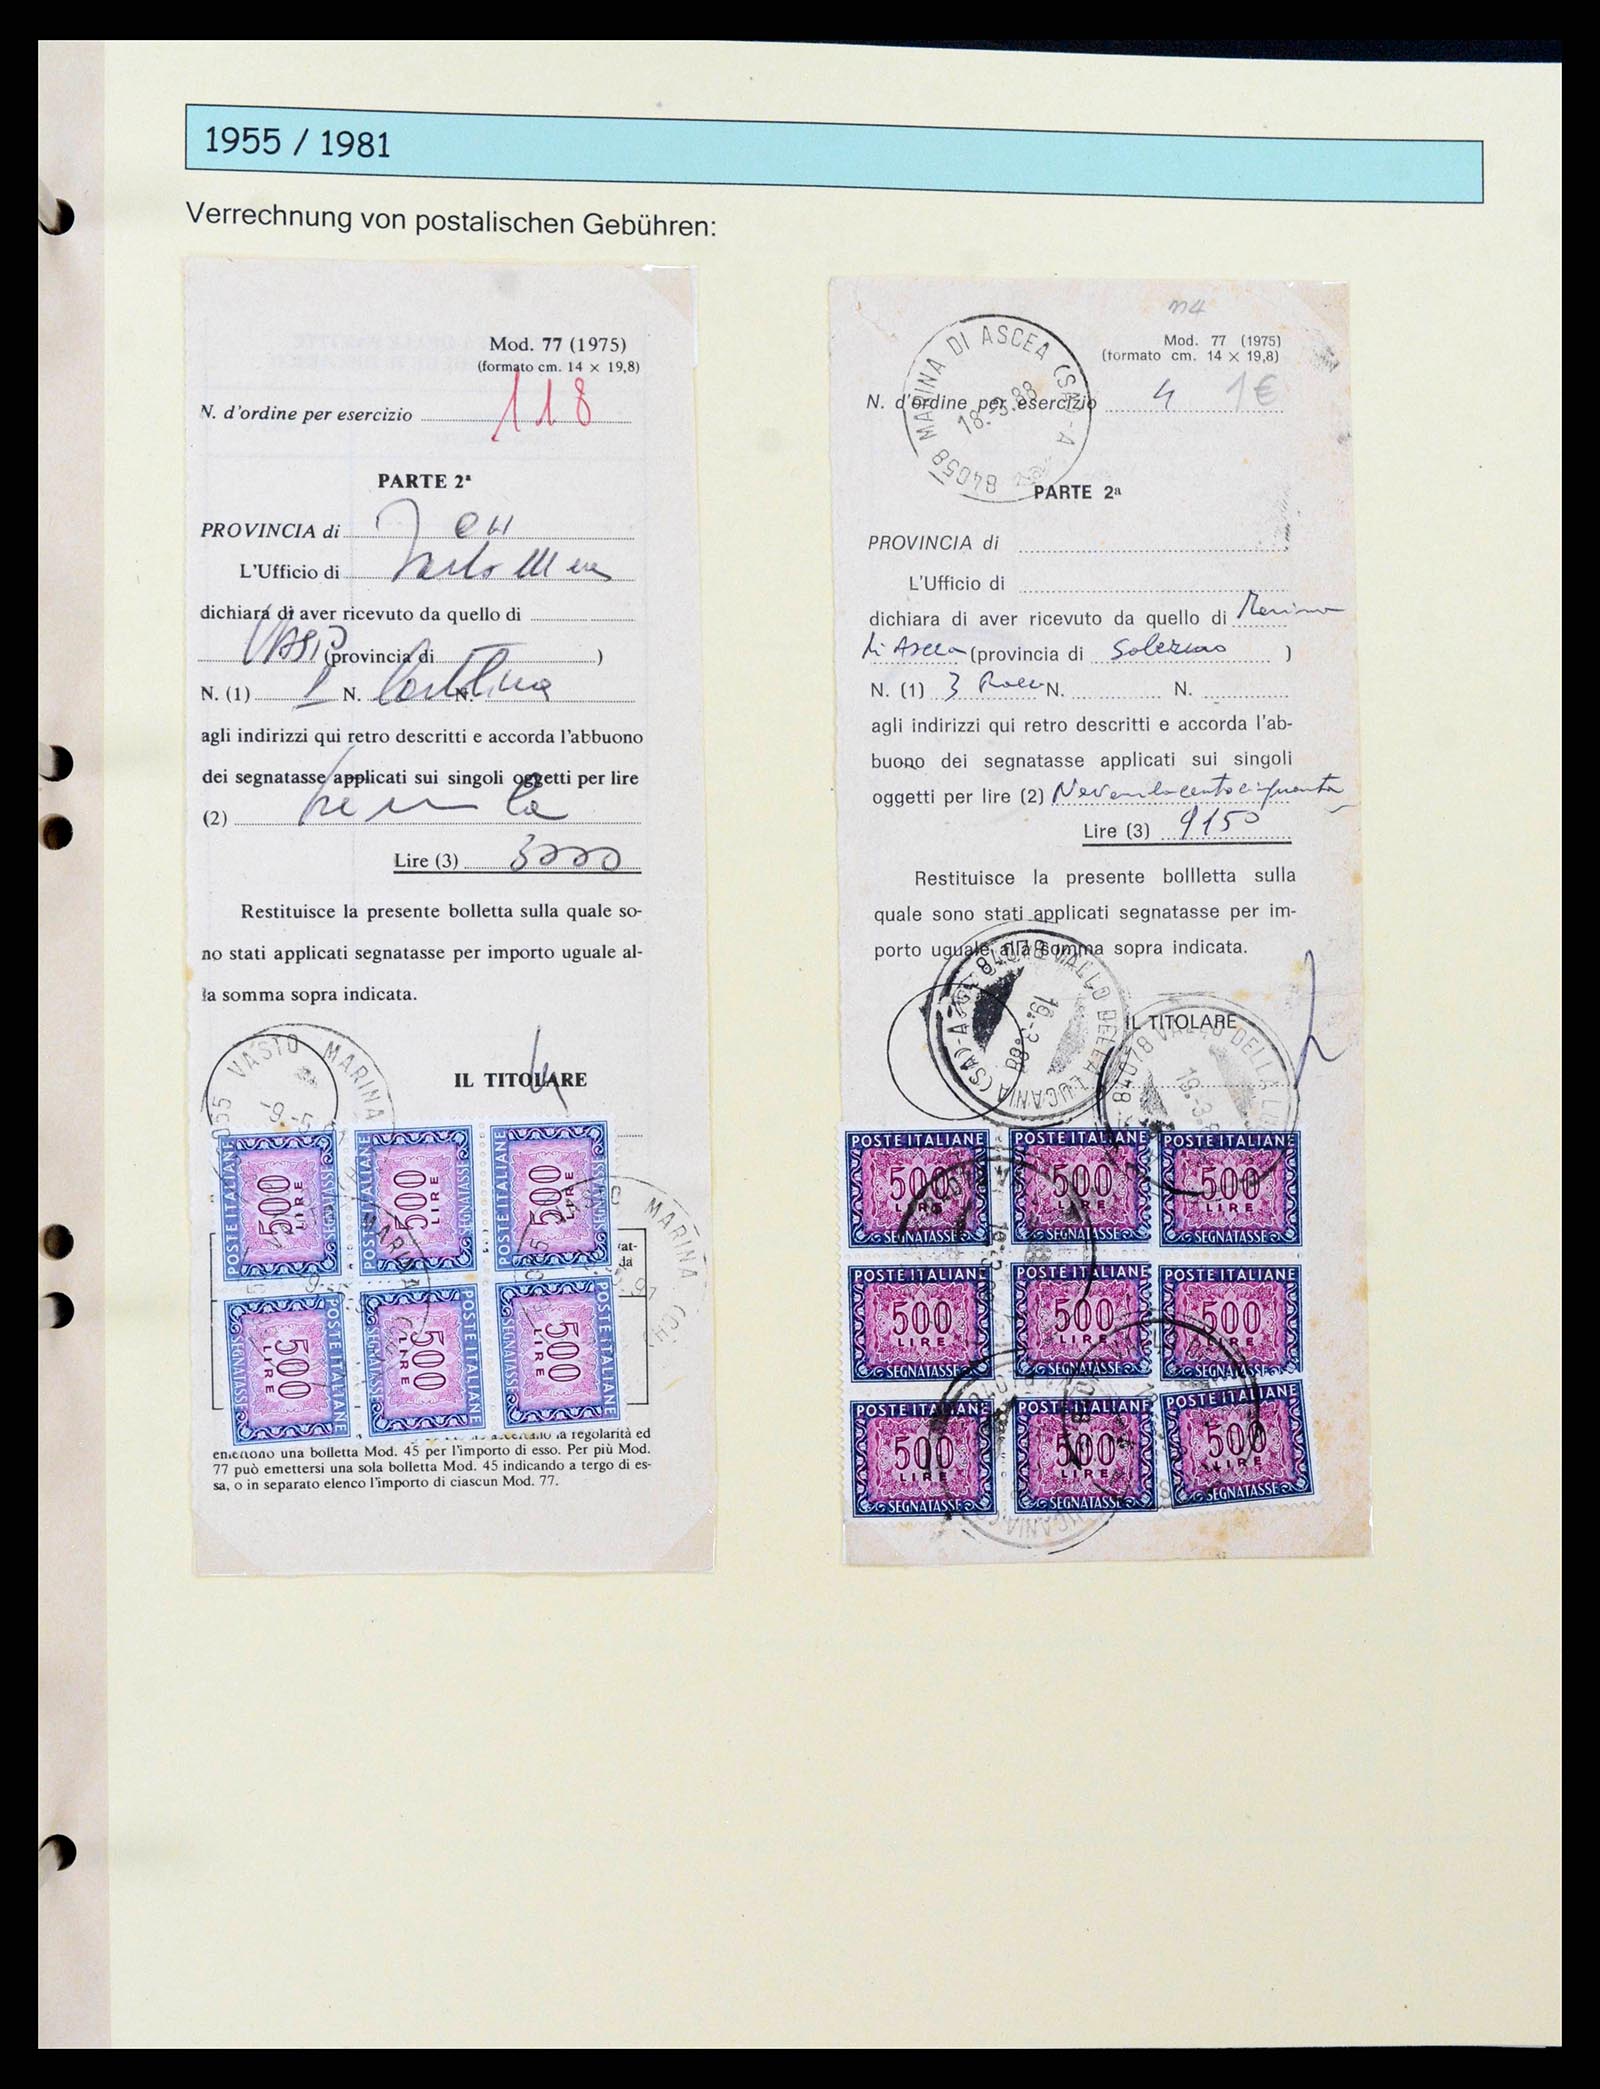 1955 / 1981
Verrechnung von postalischen Gebühren:
Mod. 77 (1975)
(formato cm. 14 × 19,8)
N. d'ordine per esercizio 118
PARTE 2ª
PROVINCIA di CH
L'Ufficio di Vasto
dichiara di aver ricevuto da quello di
Vasto (provincia di )
N. (1) 1 N. Cartolina N.
agli indirizzi qui retro descritti e accorda l'abbuono
dei segnatasse applicati sui singoli oggetti per lire
(2) tremila
Lire (3) 3000
Restituisce la presente bolletta sulla quale so-
no stati applicati segnatasse per importo uguale al-
la somma sopra indicata.
IL TITOLARE
VASTO MARINA
POSTE ITALIANE 500 LIRE SEGNATASSE
POSTE ITALIANE 500 LIRE SEGNATASSE
POSTE ITALIANE 500 LIRE SEGNATASSE
POSTE ITALIANE 500 LIRE SEGNATASSE
POSTE ITALIANE 500 LIRE SEGNATASSE
POSTE ITALIANE 500 LIRE SEGNATASSE
VASTO MARINA (CH)
la regolarità ed
emettono una bolletta Mod. 45 per l'importo di esso. Per più Mod.
77 può emettersi una sola bolletta Mod. 45 indicando a tergo di es-
sa, o in separato elenco l'importo di ciascun Mod. 77.
n4
Mod. 77 (1975)
(formato cm. 14 × 19,8)
84058 MARINA DI ASCEA (SA) - A
18.-3.88
N. d'ordine per esercizio 4 1€
PARTE 2ª
PROVINCIA di
L'Ufficio di
dichiara di aver ricevuto da quello di Marina
di Ascea (provincia di Salerno )
N. (1) 3 N. N.
agli indirizzi qui retro descritti e accorda l'ab-
buono dei segnatasse applicati sui singoli
oggetti per lire (2) Novemilacentocinquanta
Lire (3) 9150
Restituisce la presente bollletta sulla
quale sono stati applicati segnatasse per im-
porto uguale alla somma sopra indicata.
84078 VALLO DELLA LUCANIA (SA) - A
19.-3.88
IL TITOLARE
84078 VALLO DELLA
POSTE ITALIANE 500 LIRE SEGNATASSE
POSTE ITALIANE 500 LIRE SEGNATASSE
POSTE ITALIANE 500 LIRE SEGNATASSE
POSTE ITALIANE 500 LIRE SEGNATASSE
POSTE ITALIANE 500 LIRE SEGNATASSE
POSTE ITALIANE 500 LIRE SEGNATASSE
POSTE ITALIANE 500 LIRE SEGNATASSE
POSTE ITALIANE 500 LIRE SEGNATASSE
POSTE ITALIANE 500 LIRE SEGNATASSE